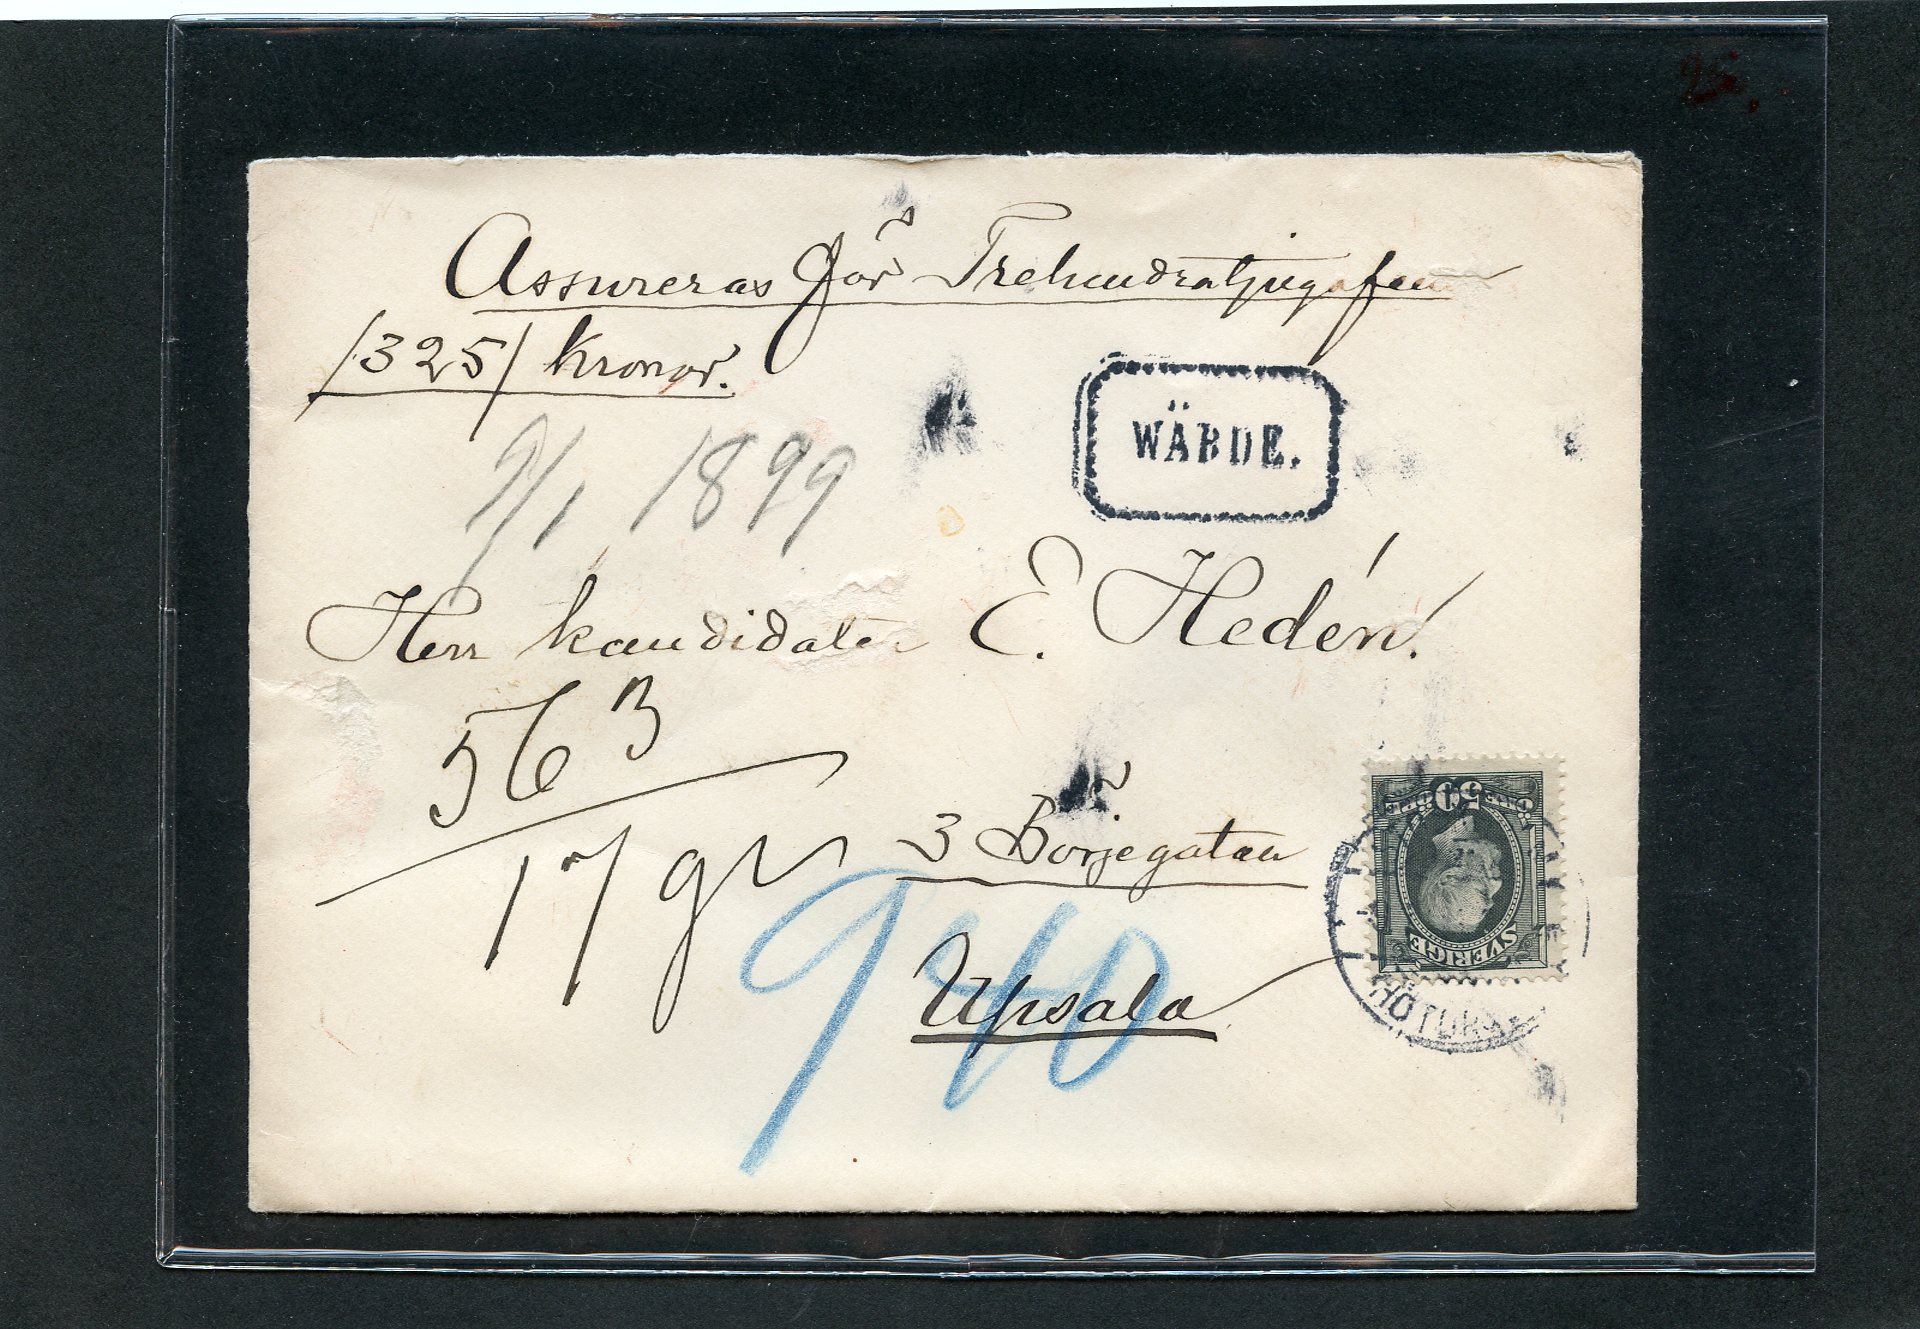 25.
Assureras för Trehundratjugofem
/325/ kronor.
WÄRDE.
9/1 1899
Herr kandidaten E. Hedén!
563
17 gr
3 Börjegatan
940
Upsala
SVERIGE
ÖRE 50 ÖRE
HÖTORGET